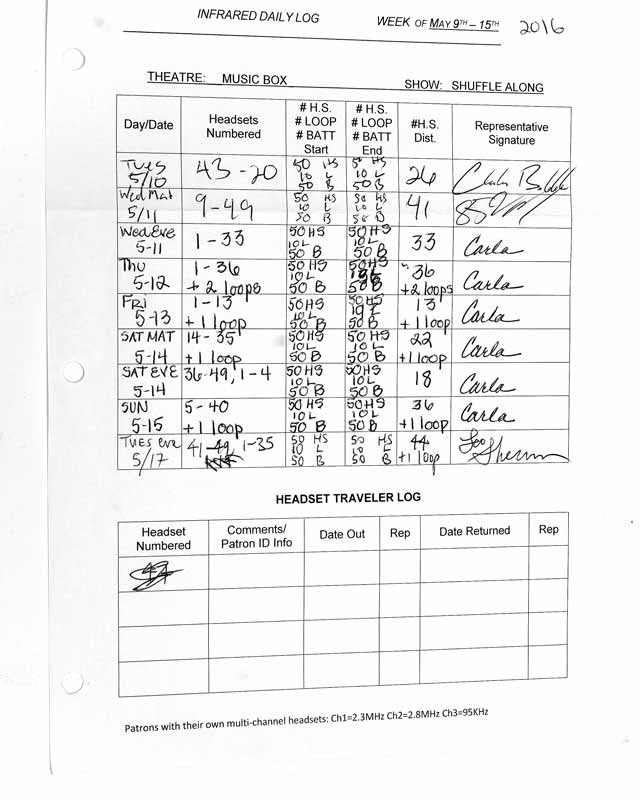 INFRARED DAILY LOG
WEEK OF MAY 9TH – 15TH 2016
THEATRE: MUSIC BOX
SHOW: SHUFFLE ALONG
Day/Date Headsets Numbered # H.S. # LOOP # BATT Start # H.S. # LOOP # BATT End #H.S. Dist. Representative Signature
TUES 5/10 43 - 20 50 HS 10 L 50 B 50 HS 10 L 50 B 26
Wed Mat 5/11 9 - 49 50 HS 10 L 50 B 50 HS 10 L 50 B 41
WED EVE 5-11 1 - 33 50 HS 10 L 50 B 50 HS 10 L 50 B 33 Carla
THU 5-12 1 - 36 + 2 loops 50 HS 10 L 50 B 50 HS 50 B 36 + 2 loops Carla
FRI 5-13 1 - 13 + 1 loop 50 HS 10 L 50 B 50 HS 50 B 13 + 1 loop Carla
SAT MAT 5-14 14 - 35 + 1 loop 50 HS 10 L 50 B 50 HS 10 L 50 B 22 + 1 loop Carla
SAT EVE 5-14 36-49, 1-4 50 HS 10 L 50 B 50 HS 10 L 50 B 18 Carla
SUN 5-15 5 - 40 + 1 loop 50 HS 10 L 50 B 50 HS 10 L 50 B 36 + 1 loop Carla
Tues eve 5/17 41 - 49, 1-35 50 HS 10 L 50 B 50 HS 10 L 50 B 44 +1 loop
HEADSET TRAVELER LOG
Headset Numbered Comments/ Patron ID Info Date Out Rep Date Returned Rep
Patrons with their own multi-channel headsets: Ch1=2.3MHz Ch2=2.8MHz Ch3=95KHz